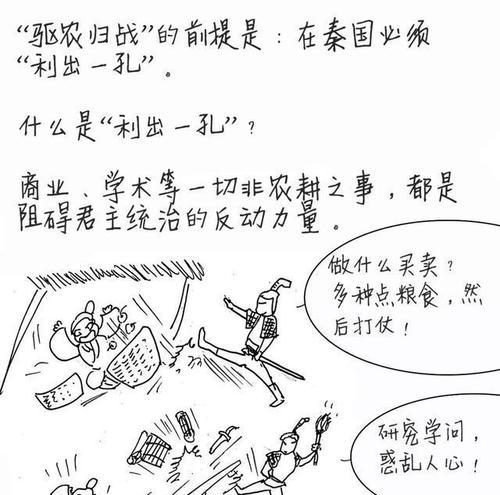 “驱农归战”的前提是：在秦国必须
“利出一孔”。
什么是“利出一孔”？
商业、学术等一切非农耕之事，都是
阻碍君主统治的反动力量。
做什么买卖？
多种点粮食，然
后打仗！
研究学问，
惑乱人心！